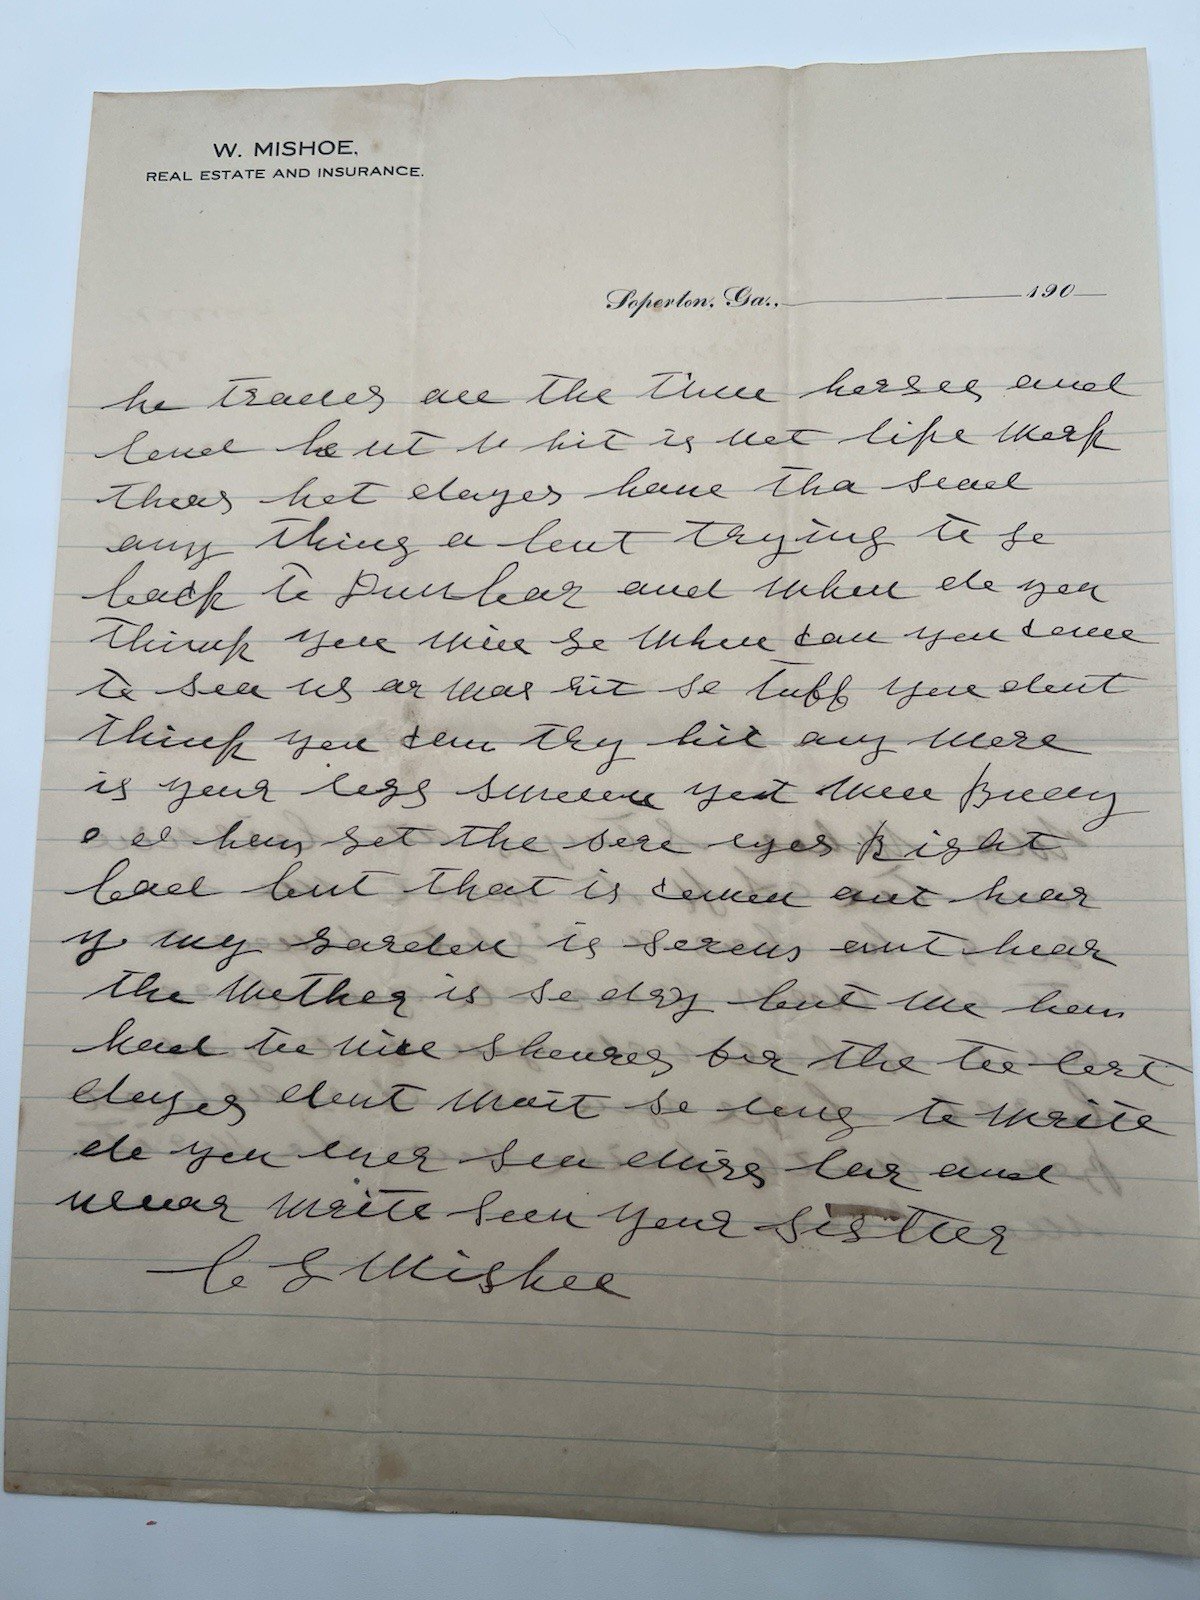 W. MISHOE,
REAL ESTATE AND INSURANCE.
Soperton, Ga., 190
he trades all the time horses and
land but hit is not like work
thes hot dayes have tha sead
any thing a bout trying to go
back to Dunbar and when do you
think you will go when can you come
to sea us or was hit so tuff you dont
think you can try hit any more
is your legs swolen yet well
hav got the sore eyes Right
bad but that is comon out hear
my garden is out hear
the wether is so dry but we hav
had too nice showres for the too last
dayes dont wait so long to write
do you ever sea and
never write soon your sister
C G Mishoe